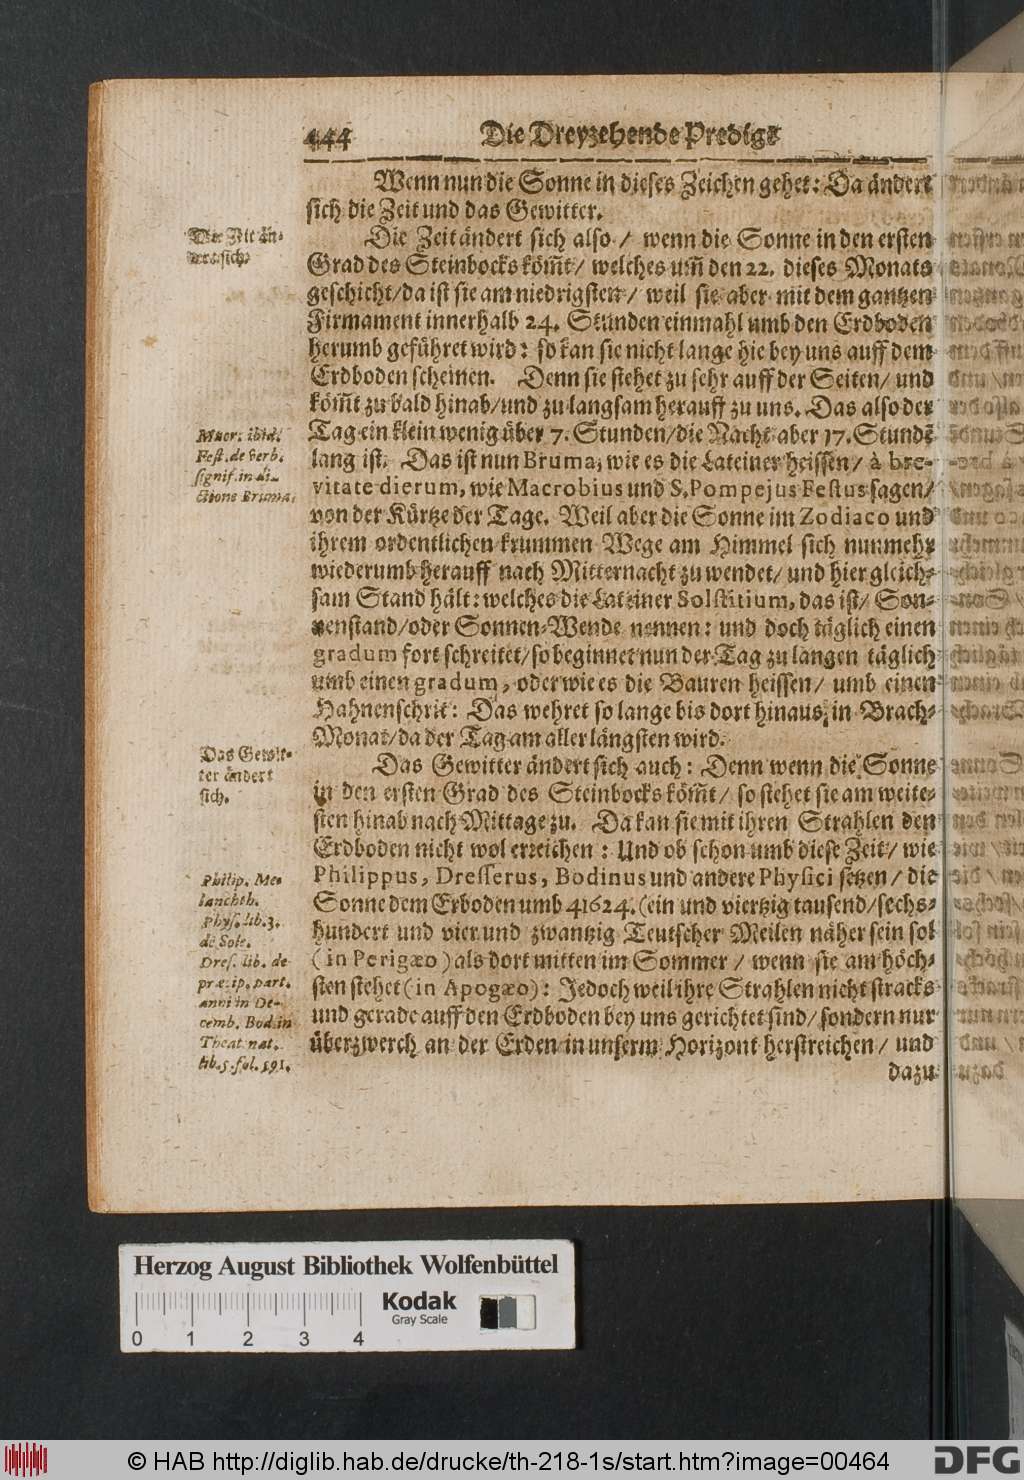 444 Die Dreyzehende Predigt
Wenn nun die Sonne in dieses Zeichen gehet: Da ändert
sich die Zeit und das Gewitter.
Die Zeit än-
dert sich.
Die Zeit ändert sich also / wenn die Sonne in den ersten
Grad des Steinbocks köm̃t / welches um̃ den 22. dieses Monats
geschicht / da ist sie am niedrigsten / weil sie aber mit dem gantzen
Firmament innerhalb 24. Stunden einmahl umb den Erdboden
herumb geführet wird: so kan sie nicht lange hie bey uns auff dem
Erdboden scheinen. Denn sie stehet zu sehr auff der Seiten / und
köm̃t zu bald hinab / und zu langsam herauff zu uns. Das also der
Tag ein klein wenig über 7. Stunden / die Nacht aber 17. Stundẽ
lang ist. Das ist nun Bruma, wie es die Lateiner heissen / à bre-
vitate dierum, wie Macrobius und S. Pompejus Festus sagen /
von der Kürtze der Tage. Weil aber die Sonne im Zodiaco und
ihrem ordentlichen krummen Wege am Himmel sich nunmehr
wiederumb herauff nach Mitternacht zu wendet / und hier gleich-
sam Stand hält: welches die Lateiner Solstitium, das ist / Son-
nenstand / oder Sonnen-Wende nennen: und doch täglich einen
gradum fort schreitet / so beginnet nun der Tag zu langen täglich
umb einen gradum, oder wie es die Bauren heissen / umb einen
Hahnenschrit: Das wehret so lange bis dort hinaus, in Brach-
Monat / da der Tag am aller längsten wird.
Macr. ibid.
Fest. de verb.
signif. in di-
ctione Bruma.
Das Gewit-
ter ändert
sich.
Das Gewitter ändert sich auch: Denn wenn die Sonne
in den ersten Grad des Steinbocks köm̃t / so stehet sie am weite-
sten hinab nach Mittage zu. Da kan sie mit ihren Strahlen den
Erdboden nicht wol erreichen: Und ob schon umb diese Zeit / wie
Philippus, Dresserus, Bodinus und andere Physici setzen / die
Sonne dem Erboden umb 41624. (ein und viertzig tausend / sechs-
hundert und vier und zwantzig Teutscher Meilen näher sein sol
(in Perigæo) als dort mitten im Sommer / wenn sie am höch-
sten stehet (in Apogæo): Jedoch weil ihre Strahlen nicht stracks
und gerade auff den Erdboden bey uns gerichtet sind / sondern nur
überzwerch an der Erden in unserm Horizont herstreichen / und
dazu
Philip. Me-
lanchth.
Phys. lib. 3.
de Sole.
Dres. lib. de
præcip. part.
anni in De-
cemb. Bod. in
Theat. nat.
lib. 5. fol. 591.
Herzog August Bibliothek Wolfenbüttel
Kodak
Gray Scale
0 1 2 3 4
© HAB http://diglib.hab.de/drucke/th-218-1s/start.htm?image=00464
DFG